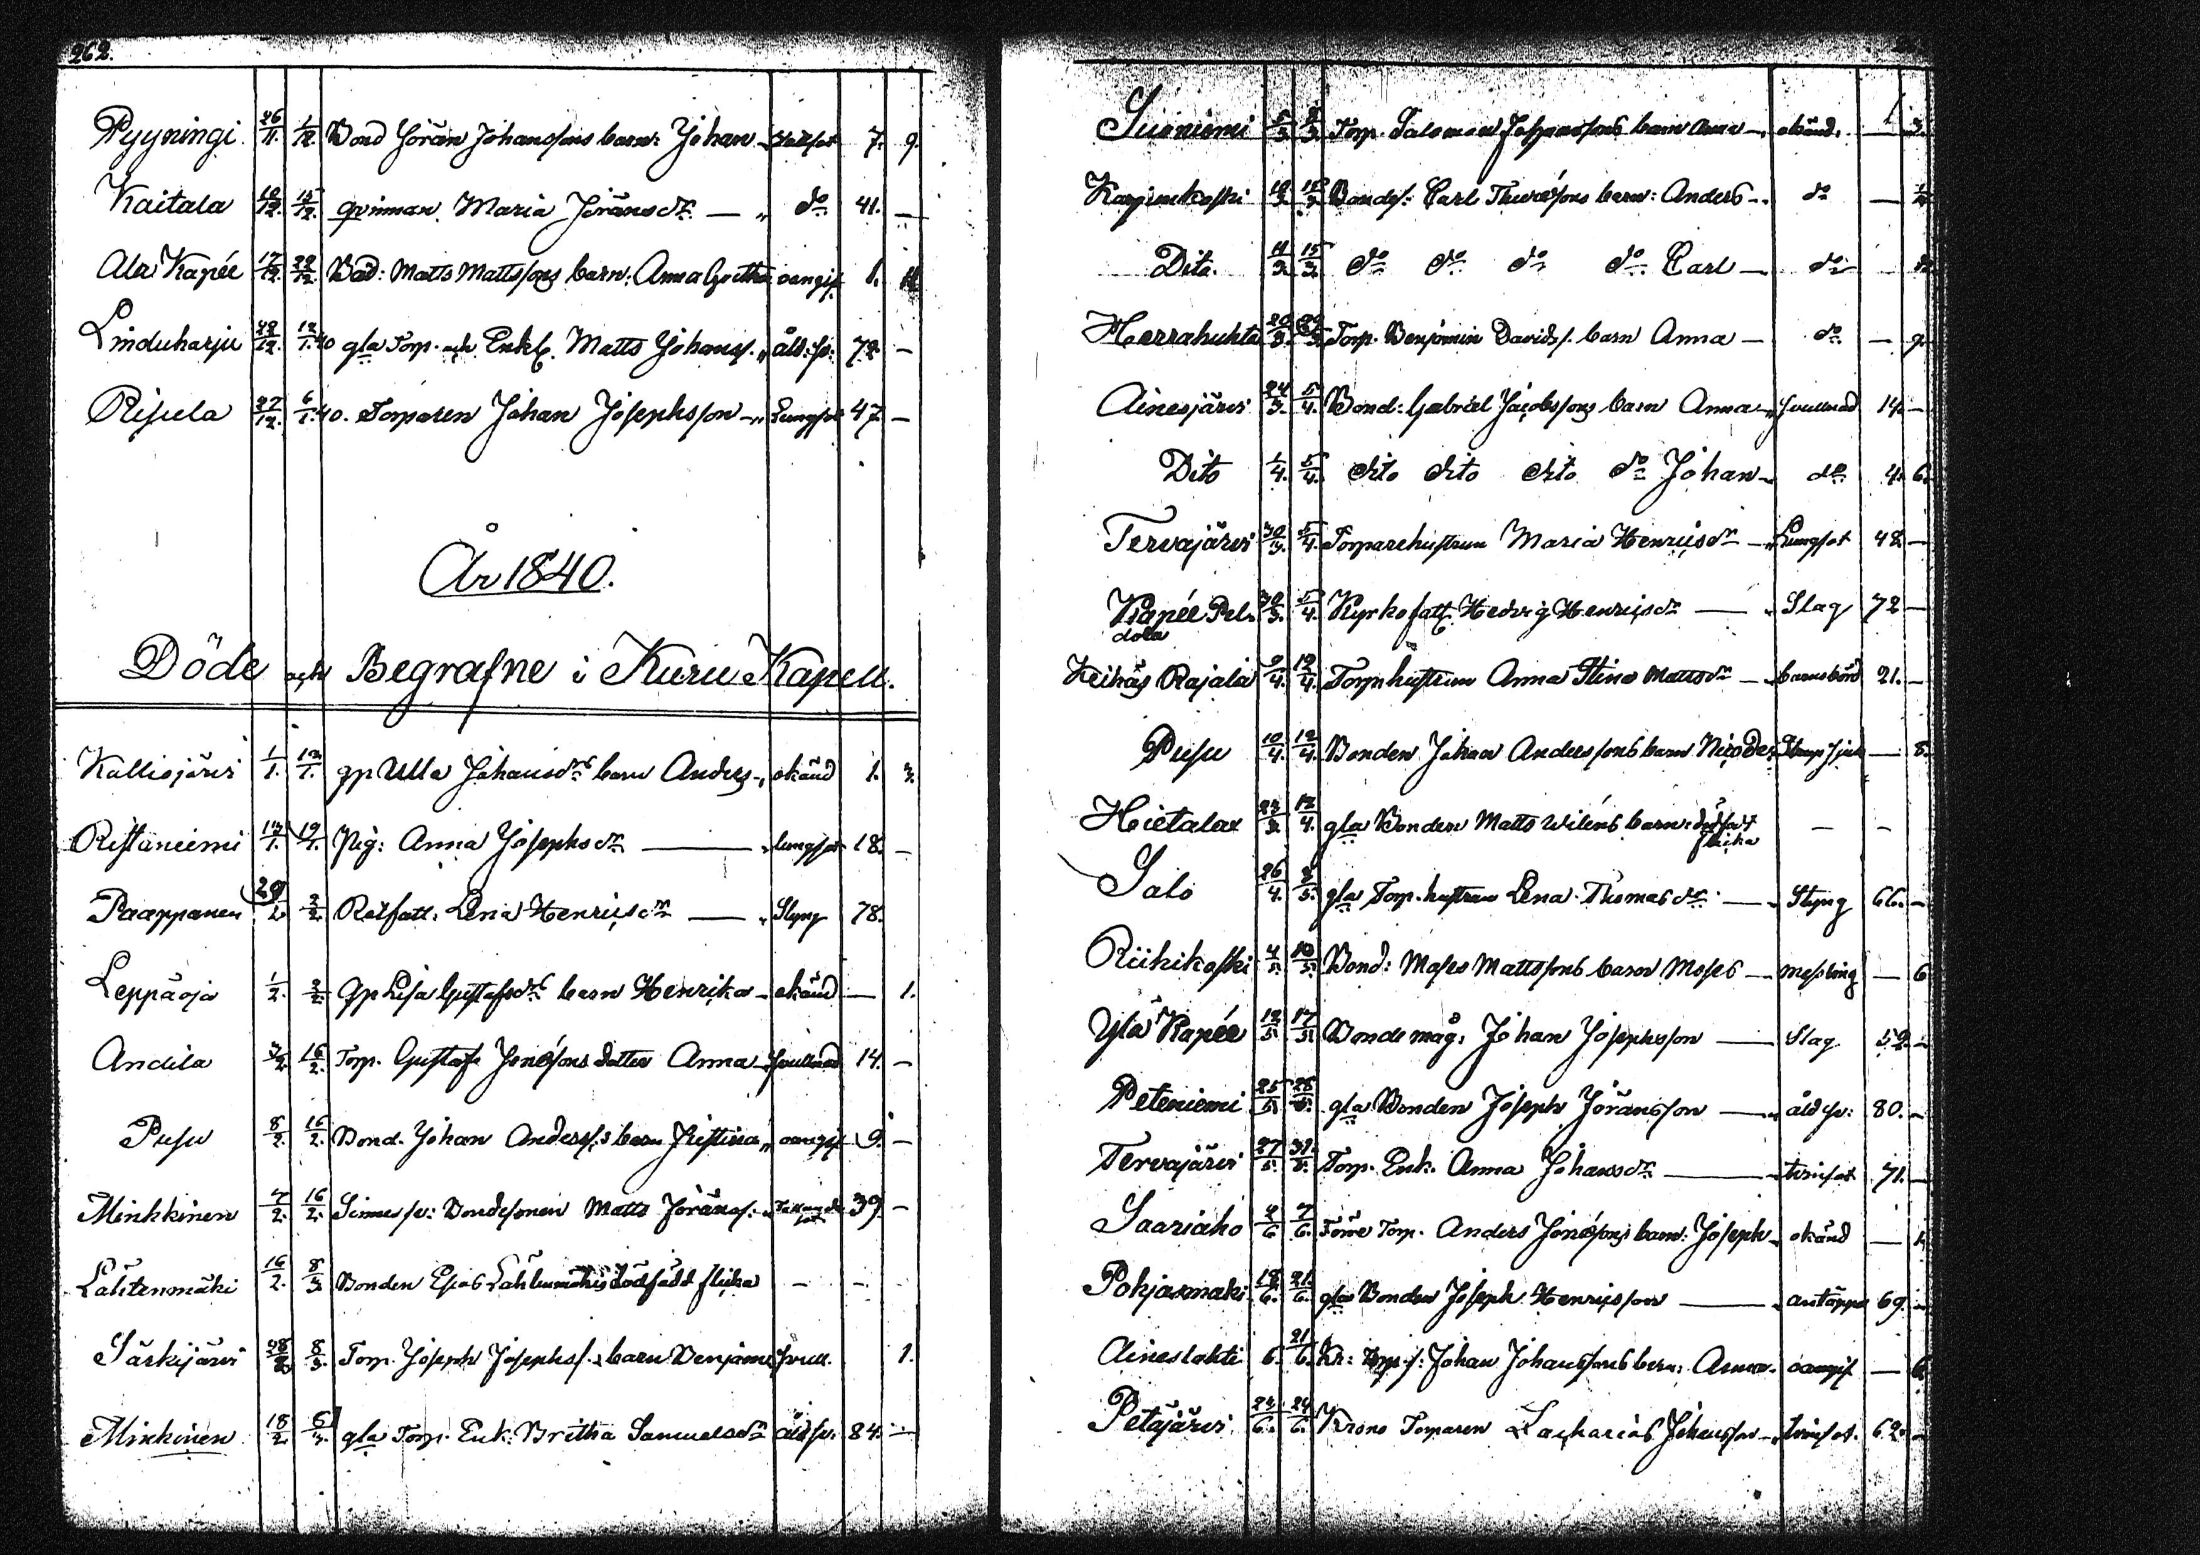 262.
Pyyningi 26/11. 1/12. Bond Jöran Johanssons barn: Johan 7. 9.
Kaitala 10/12. 15/12. qvinnan Maria Jöransdr — " do 41. —
Ala Kapée 17/12. 22/12. Bd: Matts Mattssons barn: Anna Greta oangif. 1. 11
Linduharju 22/12. 12/1.40 gla Torp. och Enkl. Matts Johanss. " åld:sv: 72 —
Pijula 27/12. 6/1.40. Torparen Johan Josephsson — " Lungsot 47. —
År 1840.
Döde och Begrafne i Kuru Kapell.
Kalliojärvi 1/1. 12/1. qp Ulla Johansdrs barn Anders — " okänd 1. 3.
Ristaniemi 14/1. 19/1. Pig: Anna Josephsdr — " lungsot 18. —
Paappanen 29/1. 2/2. Rotfatt: Lena Henricsdr — " Styng 78.
Leppäoja 1/2. 2/2. qp Lisa Gustafsdrs barn Henrika — okänd — 1.
Andila 3/2. 16/2. Torp. Gustaf Jonæsons dotter Anna — svullnad 14. —
Pusu 8/2. 16/2. Bond. Johan Anderss:s barn Kristina " oangif 9. —
Minkkinen 7/2. 16/2. Sinnessv: Bondesonen Matts Jöranss: — " Fallandesot 39. —
Lähtenmäki 16/2. 8/3. Bonden Esias Lähtenmäkis dödfödd flicka — —
Särkijärvi 28/2. 8/3. Torp. Joseph Josephss.s barn Benjamin svull. 1.
Minkinen 18/2. 6/3. gla Torp. Enk: Britha Samuelsdr åld sv: 84. —
Suoniemi 5/3. 8/3. Torp. Salomon Johanssons barn Anna — okänd. — 3.
Karjunkoski 10/3. 15/3. Bondes: Carl Thuræsons barn: Anders — do —
Dito. 11/3. 15/3. do do do do Carl — do —
Herrahuhta 20/3. 29/3. Torp. Benjamin Davidss. barn Anna — do — 9.
Ainesjärvi 24/3. 5/4. Bond: Gabriel Jacobssons barn Anna — " svullnad 14. —
Dito 1/4. 5/4. dito dito dito do Johan — do 4. 6.
Tervajärvi 30/3. 5/4. Torparehustrun Maria Henricsdr — " Lungsot 48 —
Kapée Peldola 30/3. 5/4. Kyrkofatt. Hedvig Henricsdr — " Slag 72 —
Keihäs Rajala 9/4. 12/4. Torp.hustrun Anna Stina Mattsdr — barnsbörd 21. —
Pusu 10/4. 12/4. Bonden Johan Anderssons barn — 8.
Hietala 23/3. 12/4. gla Bonden Matts Wiléns barn: dödfödt flicka — —
Salo 26/4. 3/5. gla Torp. hustrun Lena Thomasdr — Styng 66. —
Riihikoski 4/5. 10/5. Bond: Moses Mattssons barn Moses — messling — 6
Yla Kapée 12/5. 17/5. Bonde måg: Johan Josephsson — Slag 52. —
Peteniemi 25/5. 28/5. gla Bonden Joseph Jöransson — åld sv: 80. —
Tervajärvi 27/5. 31/5. Torp. Enk. Anna Johansdr — tvinsot 71. —
Saariaho 4/6. 7/6. Förre Torp. Anders Jonæsons barn: Joseph — okänd —
Pohjasmäki 18/6. 21/6. gla Bonden Joseph Henricsson — andtäppa 69. —
Aineslahti 6. 21/6. Kr: Torp.s: Johan Johanssons barn: Anna — oangif — 6.
Petäjärvi 23/6. 24/6. Krono Torparen Zacharias Johansson — " tvinsot. 62. —